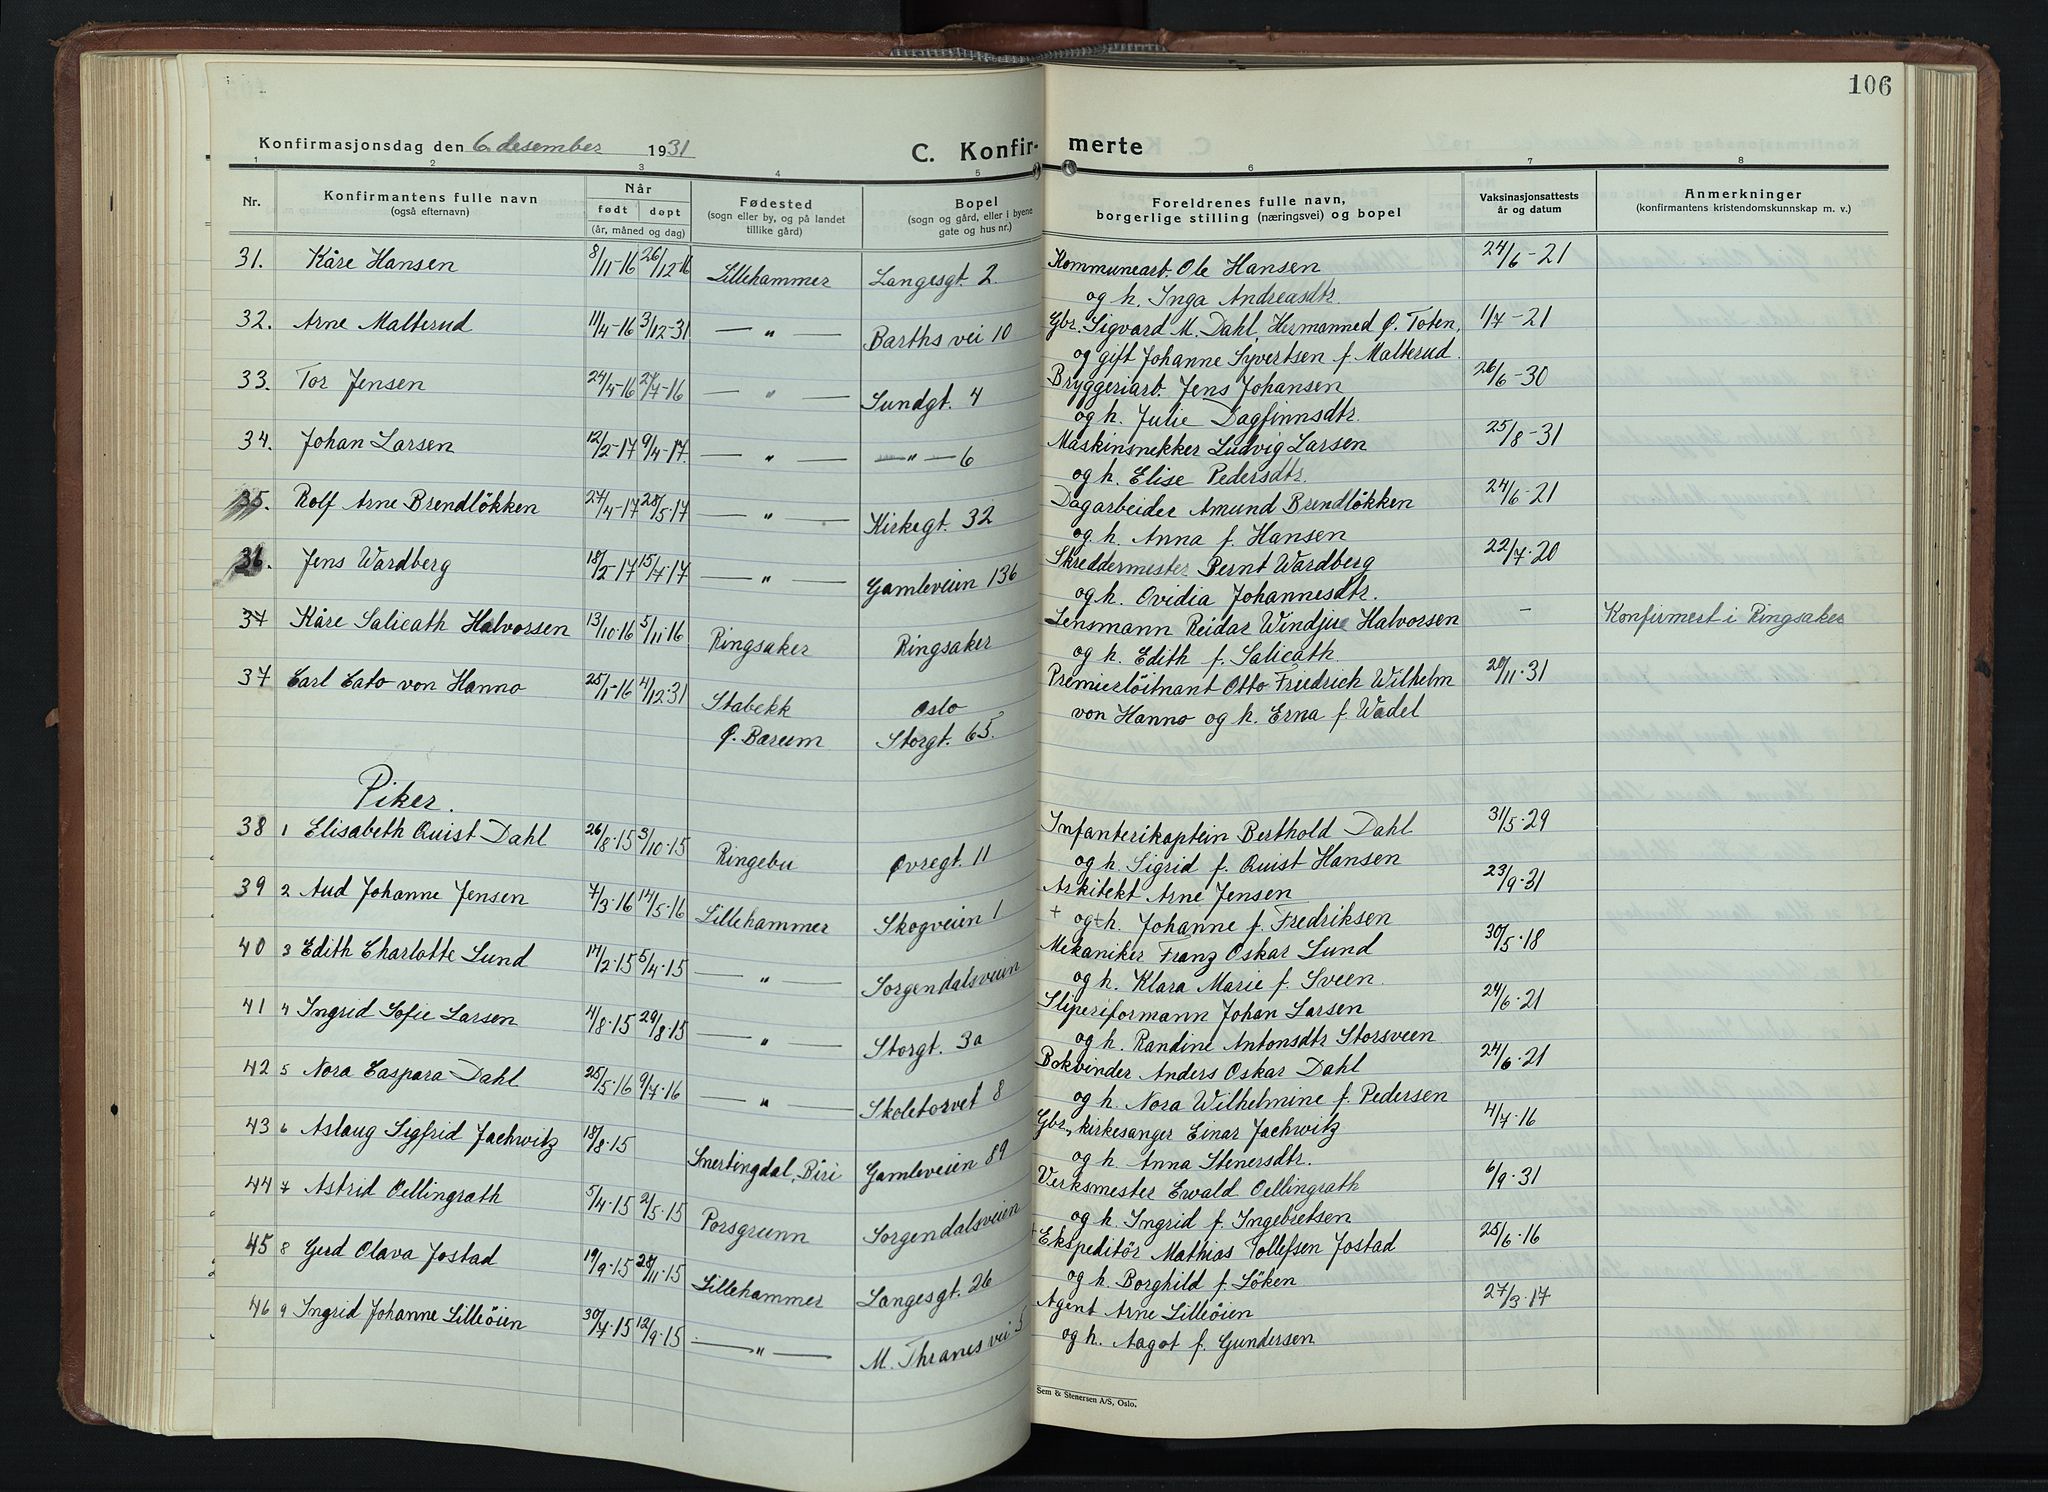 106
Konfirmasjonsdag den 6. desember 1931
C. Konfir- merte
1 2 3 4 5 6 7 8
Nr. Konfirmantens fulle navn (også efternavn) Når født døpt (år, måned og dag) Fødested (sogn eller by, og på landet tillike gård) Bopel (sogn og gård, eller i byene gate og hus nr.) Foreldrenes fulle navn, borgerlige stilling (næringsvei) og bopel Vaksinasjonsattests år og datum Anmerkninger (konfirmantens kristendomskunnskap m. v.)
31. Kåre Hansen 8/11-16 26/12-16 Lillehammer Langesgt. 2. Kommunearb. Ole Hansen 24/6-21
og h. Inga Andreasdtr.
32. Arne Malterud 11/4-16 3/12-31 — " — Barths vei 10 Gbr. Sigvard M. Dahl, Hermanned Ø. Toten, 1/7-21
og gift Johanne Syvertsen f. Malterud.
33. Tor Jensen 24/4-16 27/7-16 — " — Sundgt. 4 Bryggeriarb. Jens Johansen 26/6-30
og h. Julie Dagfinnsdtr.
34. Johan Larsen 12/2-17 9/4-17. — " — — " — 6 Maskinsnekker Ludvig Larsen 25/8-31
og h. Elise Pedersdtr.
35. Rolf Arne Brendløkken 27/4-17 28/5-17 — " — Kirkegt. 32 Dagarbeider Amund Brendløkken 24/6-21
og h. Anna f. Hansen
36. Jens Wardberg 18/2-17 15/4-17 — " — Gamleveien 136 Skreddermester Bernt Wardberg 22/7-20
og h. Ovidia Johannesdtr.
37 Kåre Salicath Halvorsen 13/10-16 5/11-16 Ringsaker Ringsaker Lensmann Reidar Windju Halvorsen — Konfirmert i Ringsaker
og h. Edith f. Salicath.
37 Carl Cato von Hanno 25/1-16 4/12-31 Stabekk Oslo Premierløitnant Otto Fredrich Wilhelm 20/11-31
Ø. Bærum Storgt. 65. von Hanno og h. Erna f. Wedel
Piker.
38 1 Elisabeth Quist Dahl 26/8-15 3/10-15 Ringebu Øvregt. 11 Infanterikaptein Berthold Dahl 31/5-29
og h. Sigrid f. Quist Hansen
39 2 Aud Johanne Jensen 7/3-16 14/5-16 Lillehammer Skogveien 1 Arkitekt Arne Jensen 23/9-31
+ og h. Johanne f. Fredriksen
40 3 Edith Charlotte Lund 14/2-15 5/4-15 — " — Sorgendalsveien Mekaniker Franz Oskar Lund 30/5-18
og h. Klara Marie f. Sveen.
41 4 Ingrid Sofie Larsen 4/8-15 29/8-15 — " — Storgt. 3a Sliperiformann Johan Larsen 24/6-21
og h. Randine Antonsdtr Storsveen
42 5 Nora Caspara Dahl 25/5-16 9/7-16 — " — Skoletorvet 8 Bokbinder Anders Oskar Dahl 24/6-21
og h. Nora Wilhelmine f. Pedersen
43 6 Aslaug Sigfrid Jachwitz 18/8-15 Snertingdal, Biri Gamleveien 89 Gbr., kirkesanger Einar Jachwitz 4/7-16
og h. Anna Stenersdtr.
44 7 Astrid Oellingrath 5/4-15 2/5-15 Porsgrunn Sorgendalsveien Verksmester Ewald Oellingrath 6/9-31
og h. Ingrid f. Ingebretsen
45 8 Gerd Olava Jostad 19/9-15 28/11-15 Lillehammer Langesgt. 26 + Ekspeditør Mathias Tollefsen Jostad 25/6-16
og h. Borghild f. Løken
46 9 Ingrid Johanne Lilleøien 30/7-15 12/9-15 — " — M. Thranes vei 5 Agent Arne Lilleøien 27/3-17
og h. Aagot f. Gundersen
Sem & Stenersen A/S, Oslo.